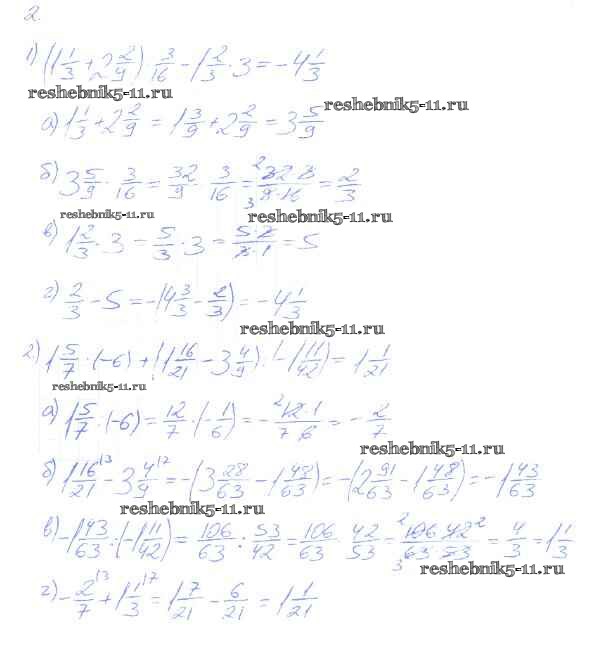 2.
1) (1 1/3 + 2 2/9) · 3/16 - 1 2/3 · 3 = -4 1/3
reshebnik5-11.ru
reshebnik5-11.ru
а) 1 1/3 + 2 2/9 = 1 3/9 + 2 2/9 = 3 5/9
б) 3 5/9 · 3/16 = 32/9 · 3/16 = 32·3/9·16 = 2/3
reshebnik5-11.ru
reshebnik5-11.ru
в) 1 2/3 · 3 = 5/3 · 3 = 5·3/3·1 = 5
г) 2/3 - 5 = -(4 3/3 - 2/3) = -4 1/3
reshebnik5-11.ru
2) 1 5/7 : (-6) + (1 16/21 - 3 4/9) : (-1 11/42) = 1 1/21
reshebnik5-11.ru
а) 1 5/7 : (-6) = 12/7 · (-1/6) = -12·1/7·6 = -2/7
reshebnik5-11.ru
б) 1 16/21 - 3 4/9 = -(3 28/63 - 1 48/63) = -(2 91/63 - 1 48/63) = -1 43/63
reshebnik5-11.ru
в) -1 43/63 : (-1 11/42) = 106/63 : 53/42 = 106/63 · 42/53 = 106·42/63·53 = 4/3 = 1 1/3
reshebnik5-11.ru
г) -2/7 + 1 1/3 = 1 7/21 - 6/21 = 1 1/21